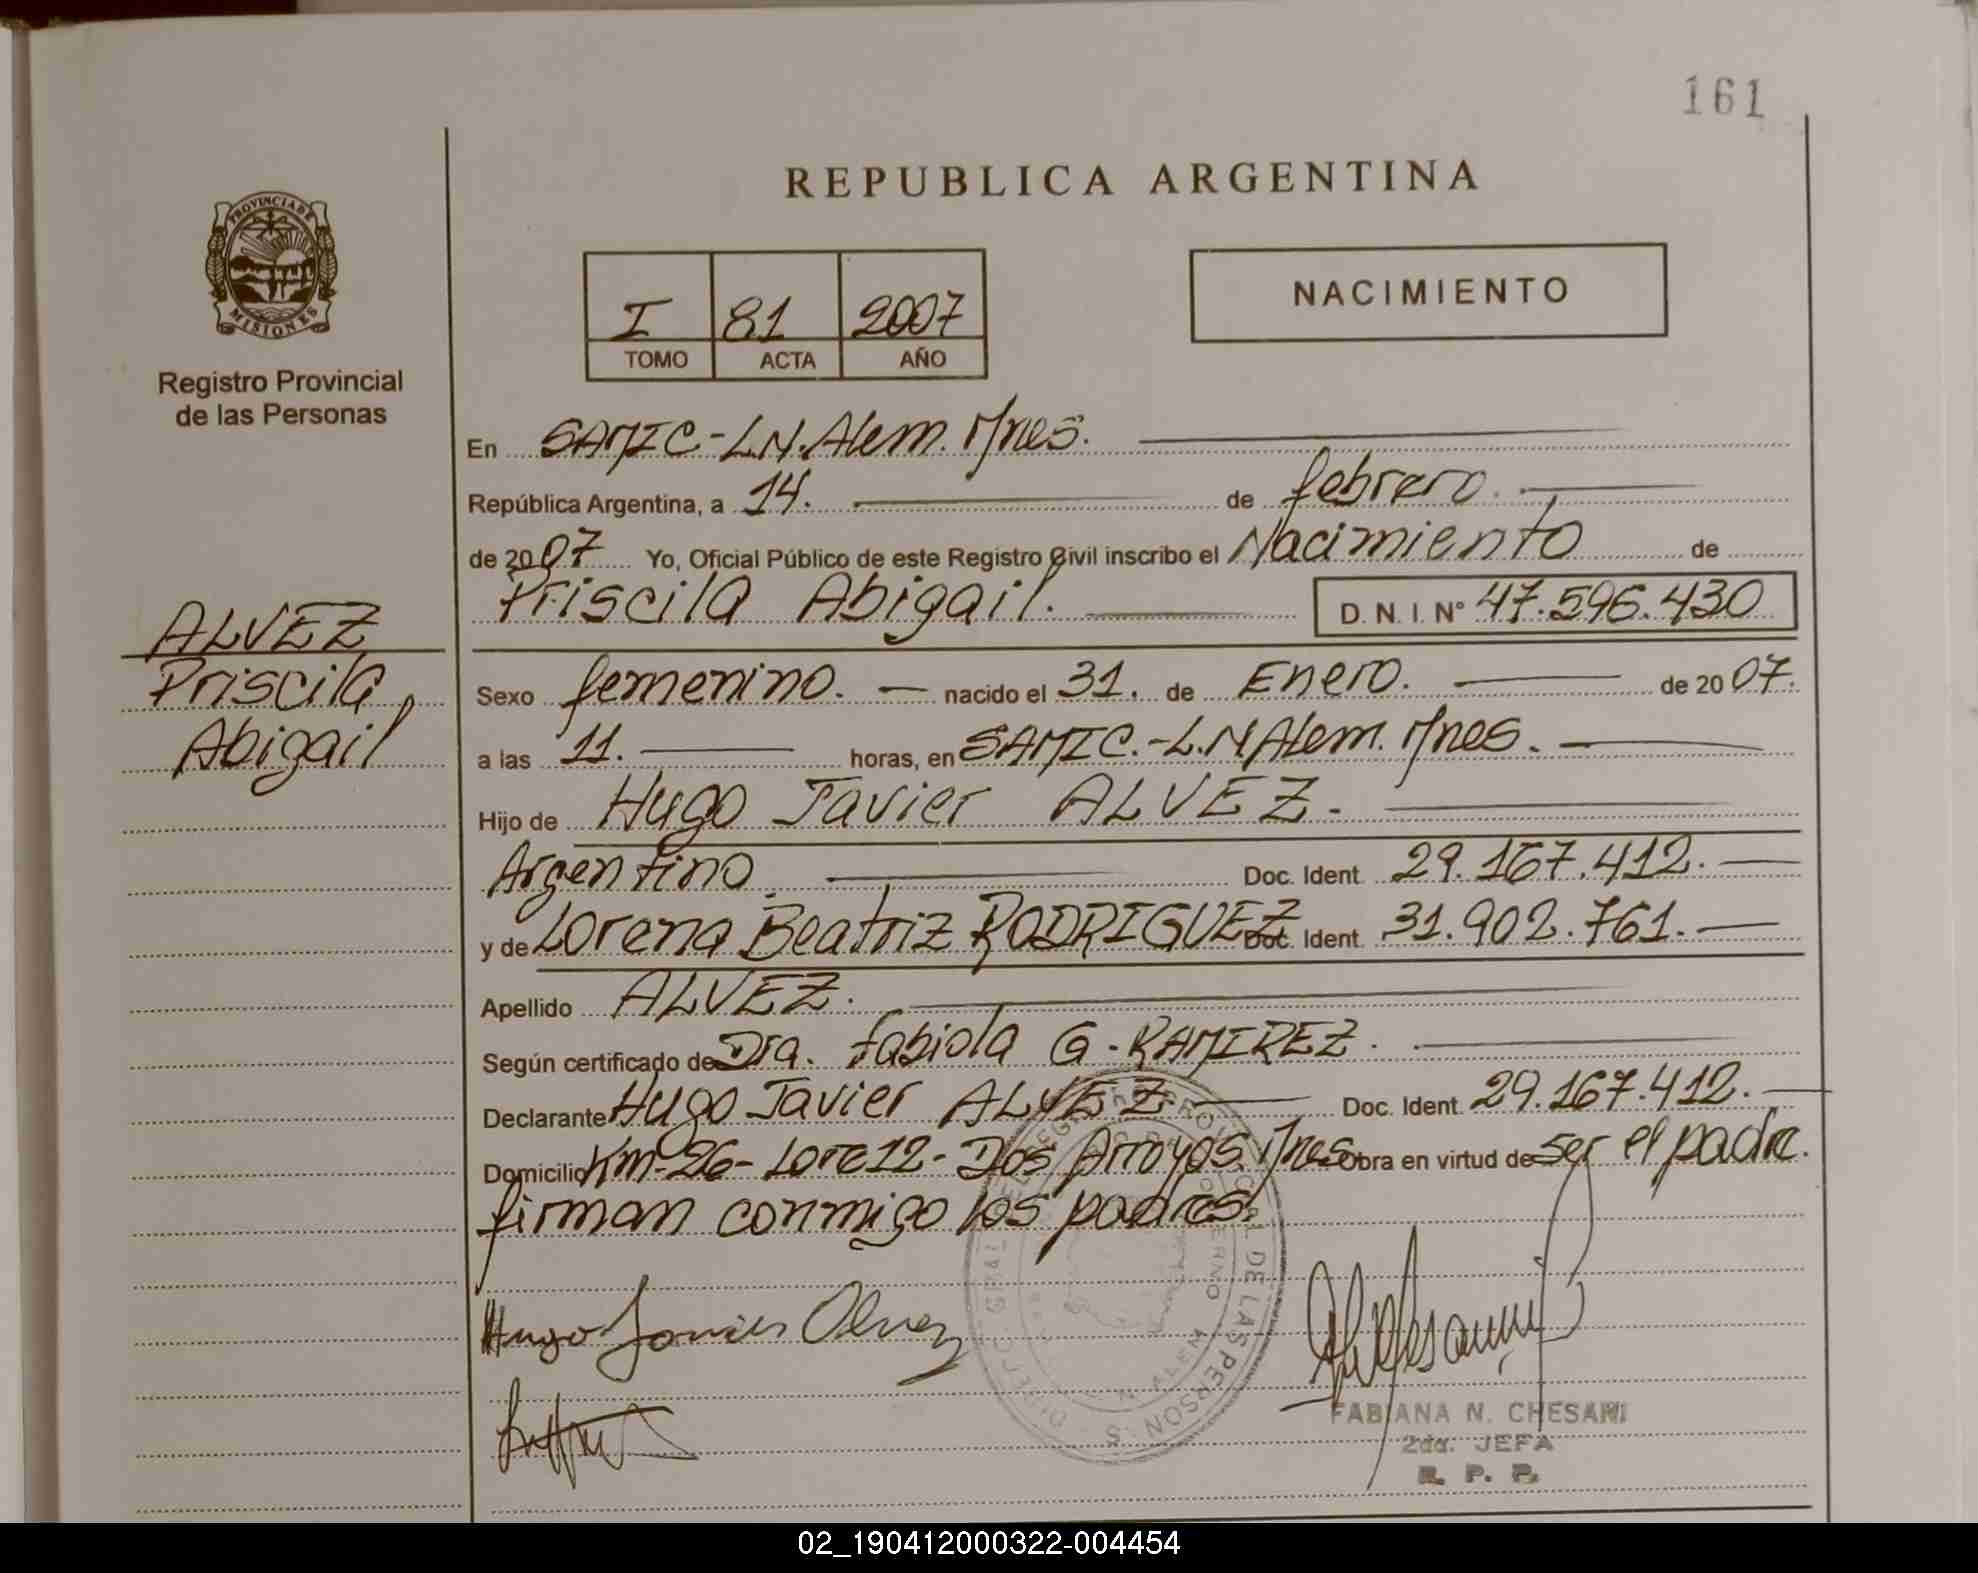 161
REPUBLICA ARGENTINA
PROVINCIA DE
MISIONES
Registro Provincial
de las Personas
I 81 2007
TOMO ACTA AÑO
NACIMIENTO
En SAMIC-L.N.Alem. Mnes.
República Argentina, a 14. de febrero.
de 2007 Yo, Oficial Público de este Registro Civil inscribo el Nacimiento de
Priscila Abigail. D. N. I. N° 47.596.430
ALVEZ
Priscila
Abigail
Sexo femenino. nacido el 31. de Enero. de 2007.
a las 11. horas, en SAMIC.-L.N Alem. Mnes.
Hijo de Hugo Javier ALVEZ.
Argentino Doc. Ident. 29.167.412.
y de Lorena Beatriz RODRIGUEZ Doc. Ident. 31.902.761.
Apellido ALVEZ.
Según certificado de Dra. Fabiola G. RAMIREZ.
Declarante Hugo Javier ALVEZ Doc. Ident. 29.167.412.
Domicilio Km-26- Lote 12- Dos Arroyos. Mnes Obra en virtud de ser el padre.
firman conmigo los padres.
Hugo Javier Alvez
FABIANA N. CHESANI
2da. JEFA
R. P. P.
02_190412000322-004454